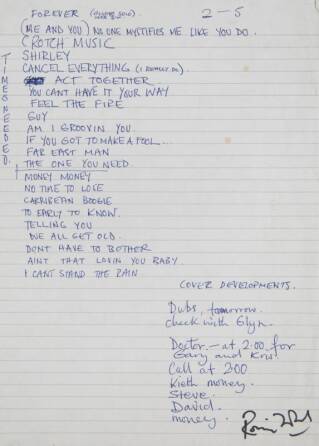 FOREVER
2-5
(ME AND YOU) NO ONE MYSTIFIES ME LIKE YOU DO.
CROTCH MUSIC
SHIRLEY
CANCEL EVERYTHING (I REALLY DO)
ACT TOGETHER
YOU CANT HAVE IT YOUR WAY
FEEL THE FIRE
GUY
AM I GROOVIN YOU
IF YOU GOT TO MAKE A FOOL
FAR EAST MAN
THE ONE YOU NEED
TIME NEEDED.
MONEY MONEY
NO TIME TO LOSE
CARRIBEAN BOOGIE
TO EARLY TO KNOW.
TELLING YOU
WE ALL GET OLD
DONT HAVE TO BOTHER
AINT THAT LOVIN YOU BABY.
I CANT STAND THE RAIN
COVER DEVELOPMENTS.
Dubs, tomorrow.
check with Glyn.
Doctor.- at 2.00 for
Gary and Kris
Call at 2:00
Kieth money.
Steve.
David.
money.